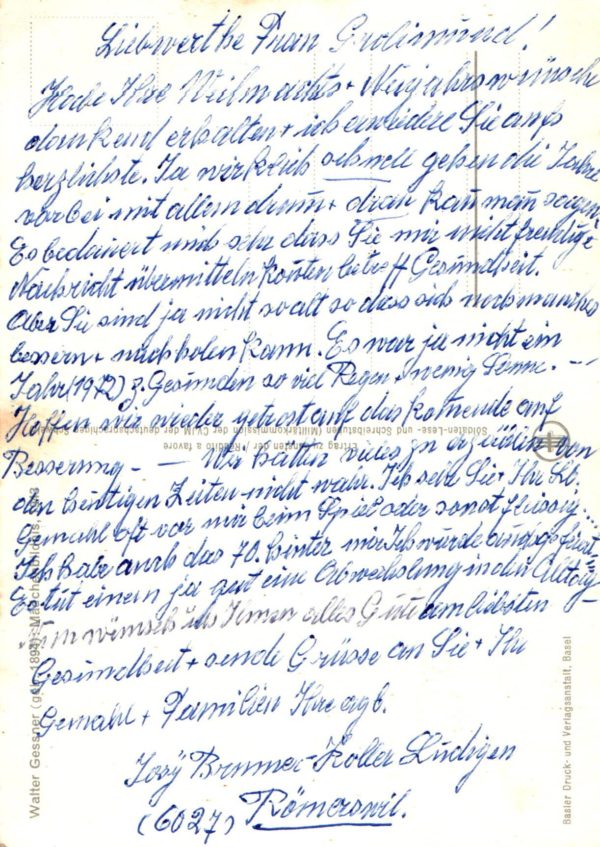 Liebwerthe Frau Grolimund!
Habe Ihre Weihnachts + Neujahrswünsche
dankend erhalten + ich erwidere Sie aufs
herzlichste. Ja wirklich schnell gehen die Jahre
vorbei mit allem drum + dran kan man sagen.
Es bedauert mich sehr dass Sie mir nicht freudige
Nachricht übermitteln konten betreff Gesundheit.
Aber Sie sind ja nicht so alt so dass sich noch manches
bessern + nachholen kann. Es war ja nicht ein
Jahr (1972) z. Gesunden so viel Regen + wenig Sonne. —
Hoffen wir wieder getrost auf das komende auf
Besserung — — Wir hätten vieles zu erzählen von
den heutigen Zeiten nicht wahr. Ich sehe Sie + Ihr Lb.
Gemahl oft vor mir beim Spiel oder sonst fleissig...
Ich habe auch das 70. hinter mir Ich wurde
Es tut einem ja gut eine Abwechslung in den Alltag —
Nun wünsch ich Ihnen alles Gute am liebsten
Gesundheit + sende Grüsse an Sie + Ihr
Gemahl + Familien Ihre
Josy Brunner-Koller Ludigen
(6027) Römerswil.
Walter Gessner (geb. 1894):
Ertrag zu gunsten der / Reddito a favore
Soldaten-, Lese- und Schreibstuben (Militärkommission der CVJM der deutschsprachigen Schweiz)
Basler Druck- und Verlagsanstalt, Basel